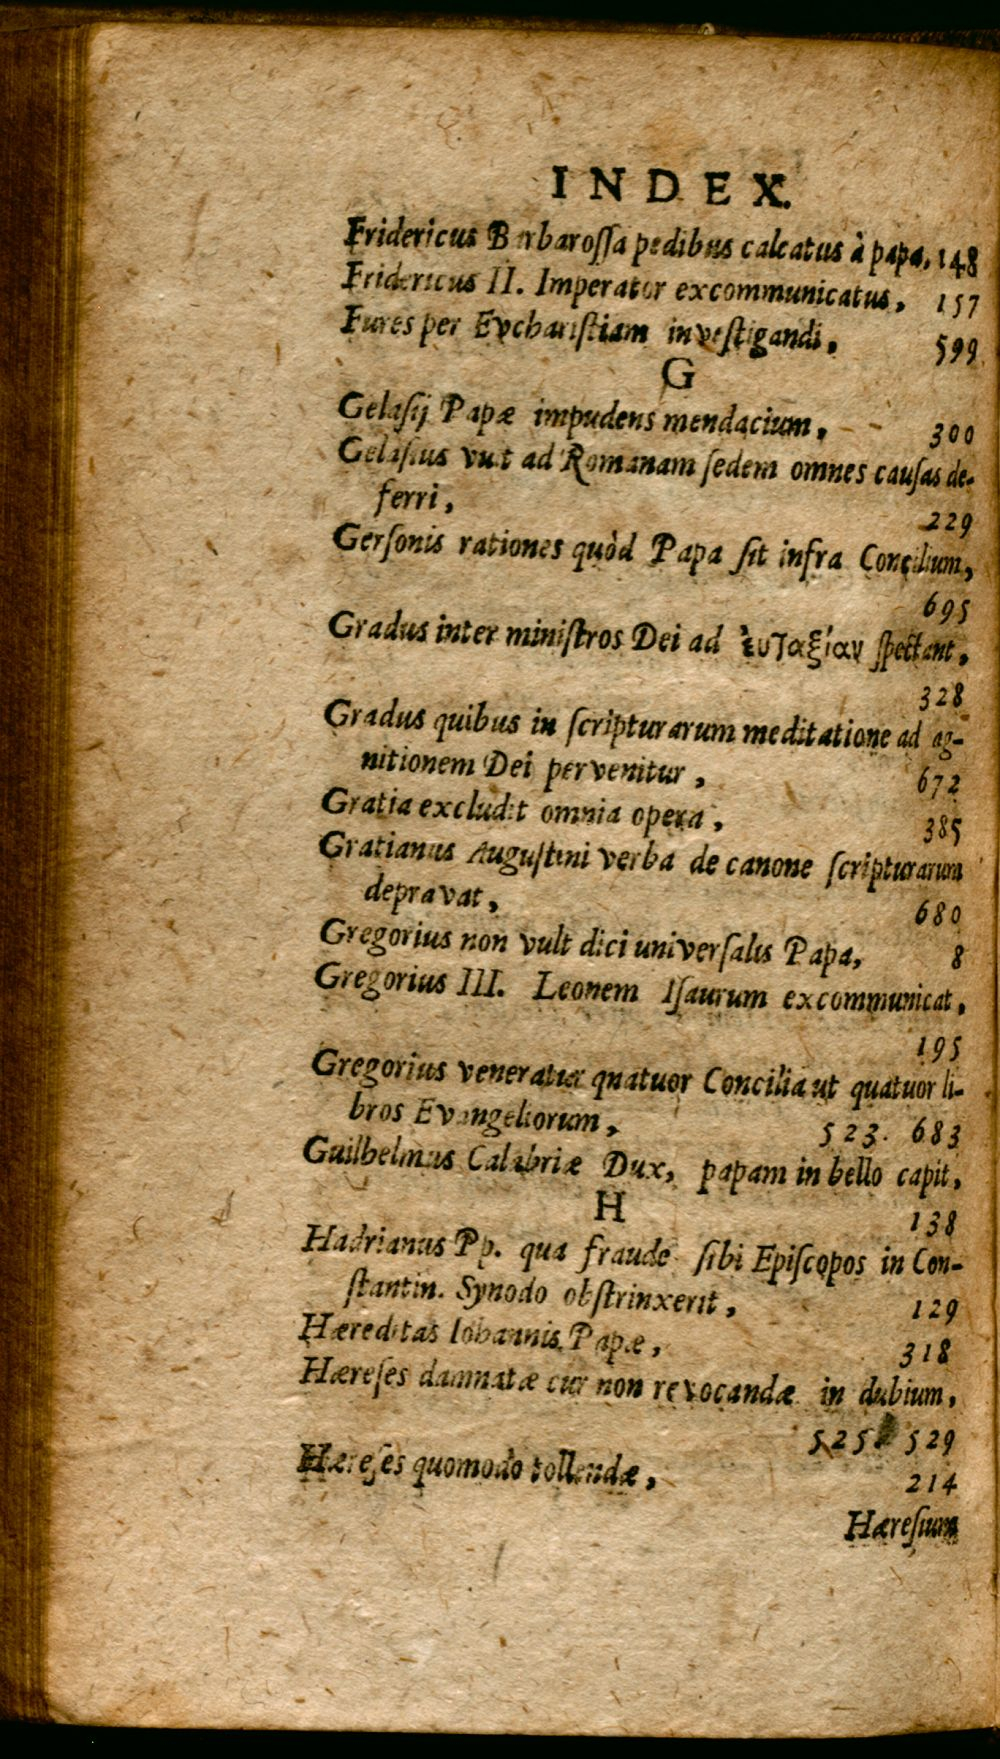 INDEX.
Fridericus Barbaroſſa pedibus calcatus à papa, 148
Fridericus II. Imperator excommunicatus, 157
Fures per Evchariſtiam inveſtigandi, 599
G
Gelaſij Papæ impudens mendacium, 300
Gelaſius vult ad Romanam ſedem omnes cauſas de-
ferri, 229
Gerſonis rationes quòd Papa ſit infra Concilium,
695
Gradus inter miniſtros Dei ad ἐυταξίαν ſpectant,
328
Gradus quibus in ſcripturarum meditatione ad ag-
nitionem Dei pervenitur, 672
Gratia excludit omnia opera, 385
Gratianus Auguſtini verba de canone ſcripturarum
depravat, 680
Gregorius non vult dici univerſalis Papa, 8
Gregorius III. Leonem Iſaurum excommunicat,
195
Gregorius veneratur qnatuor Concilia ut quatuor li-
bros Evangeliorum, 523. 683
Guilhelmus Calabriæ Dux, papam in bello capit,
138
H
Hadrianus Pp. qua fraude ſibi Epiſcopos in Con-
ſtantin. Synodo obſtrinxerit, 129
Hæreditas Iohannis Papæ, 318
Hæreſes damnatæ cur non revocandæ in dubium,
525. 529
Hæreſes quomodo tollendæ, 214
Hæreſium